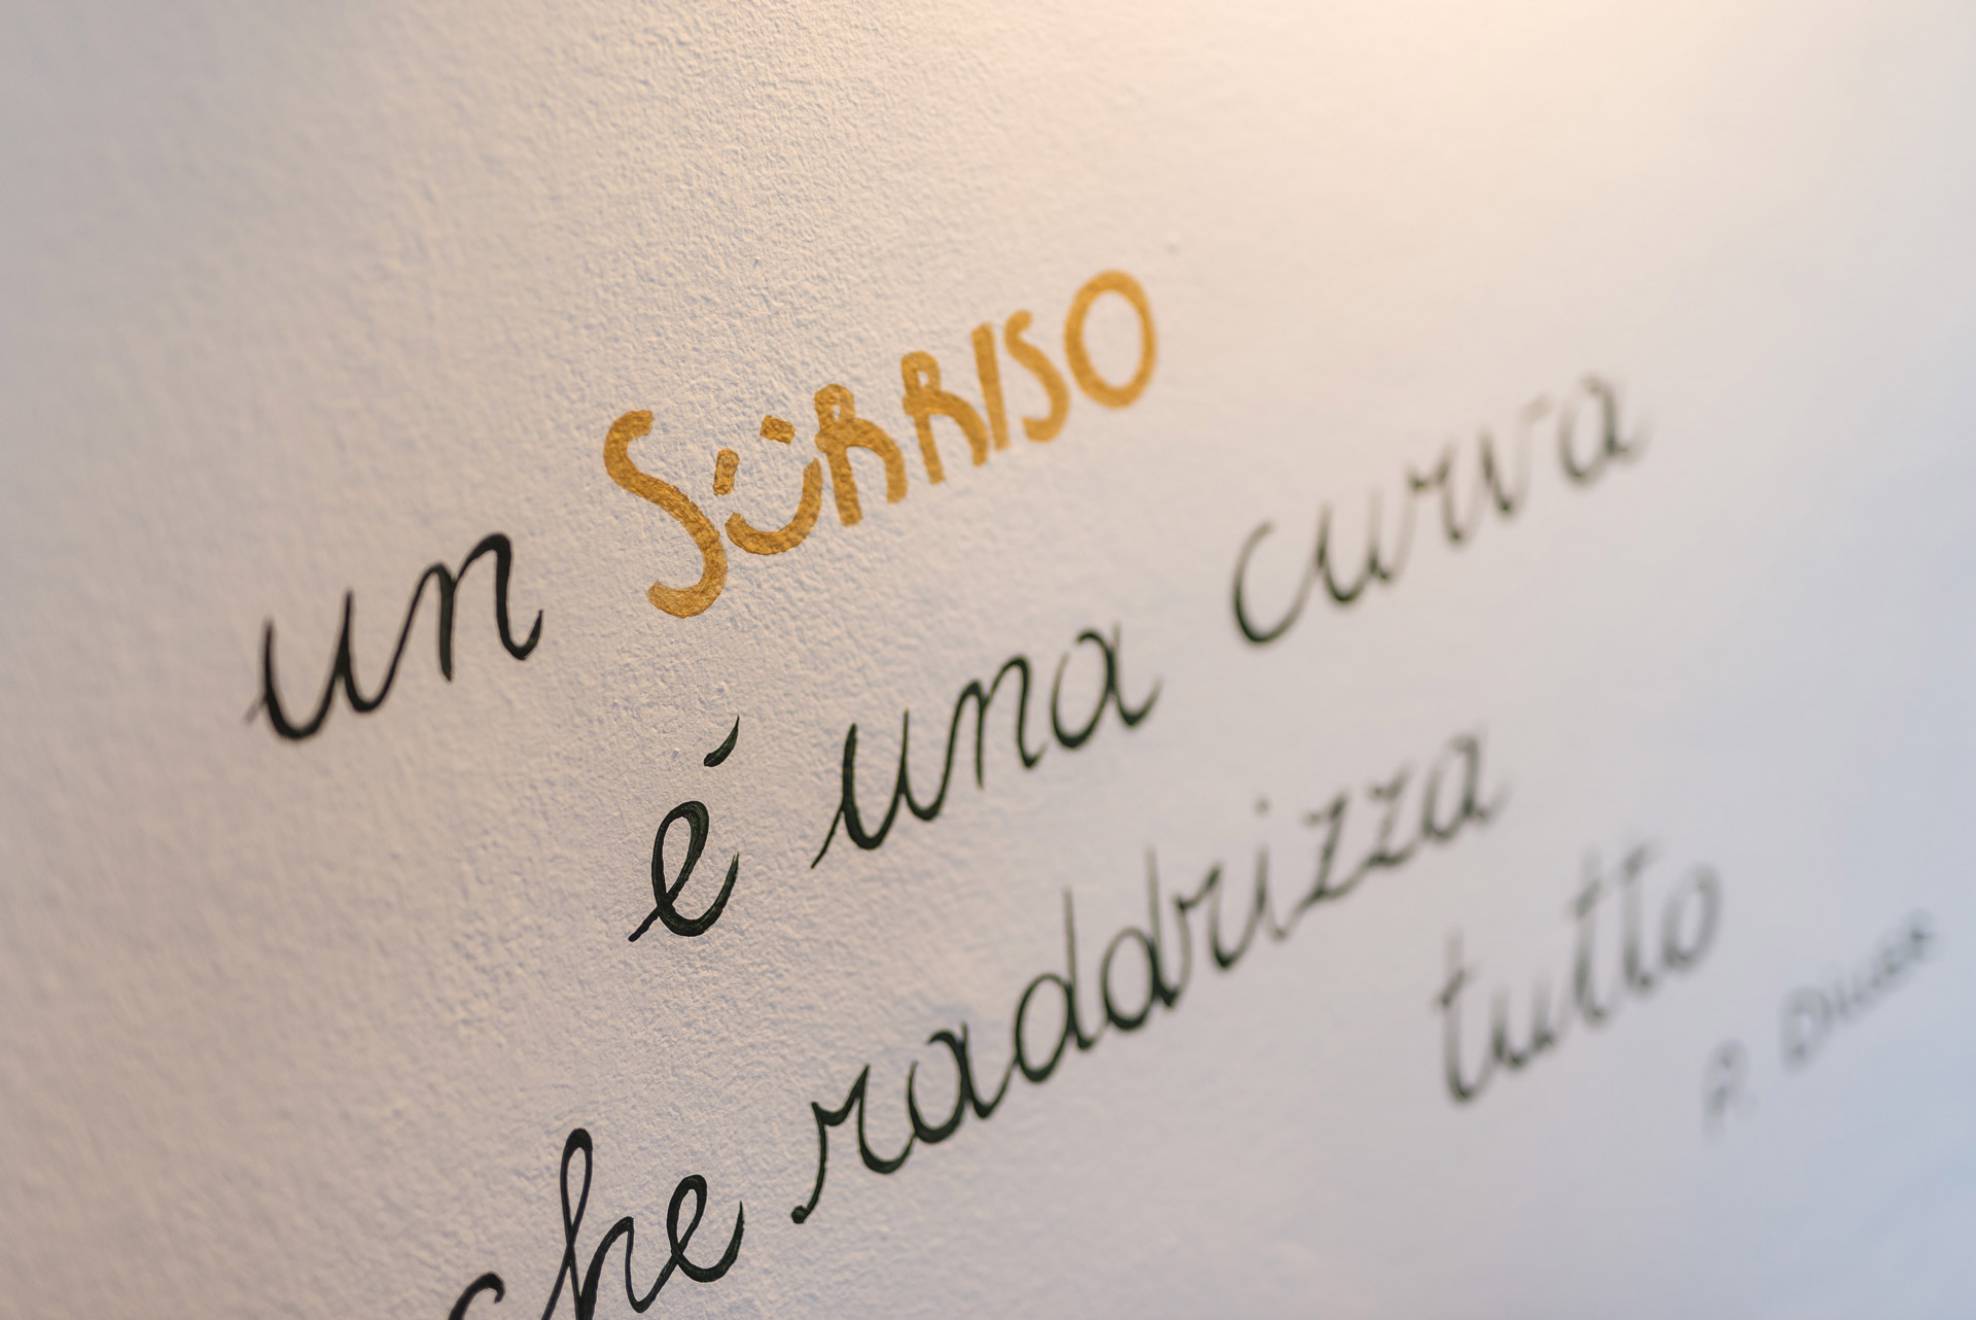 un SORRISO
é una curva
che raddrizza
tutto